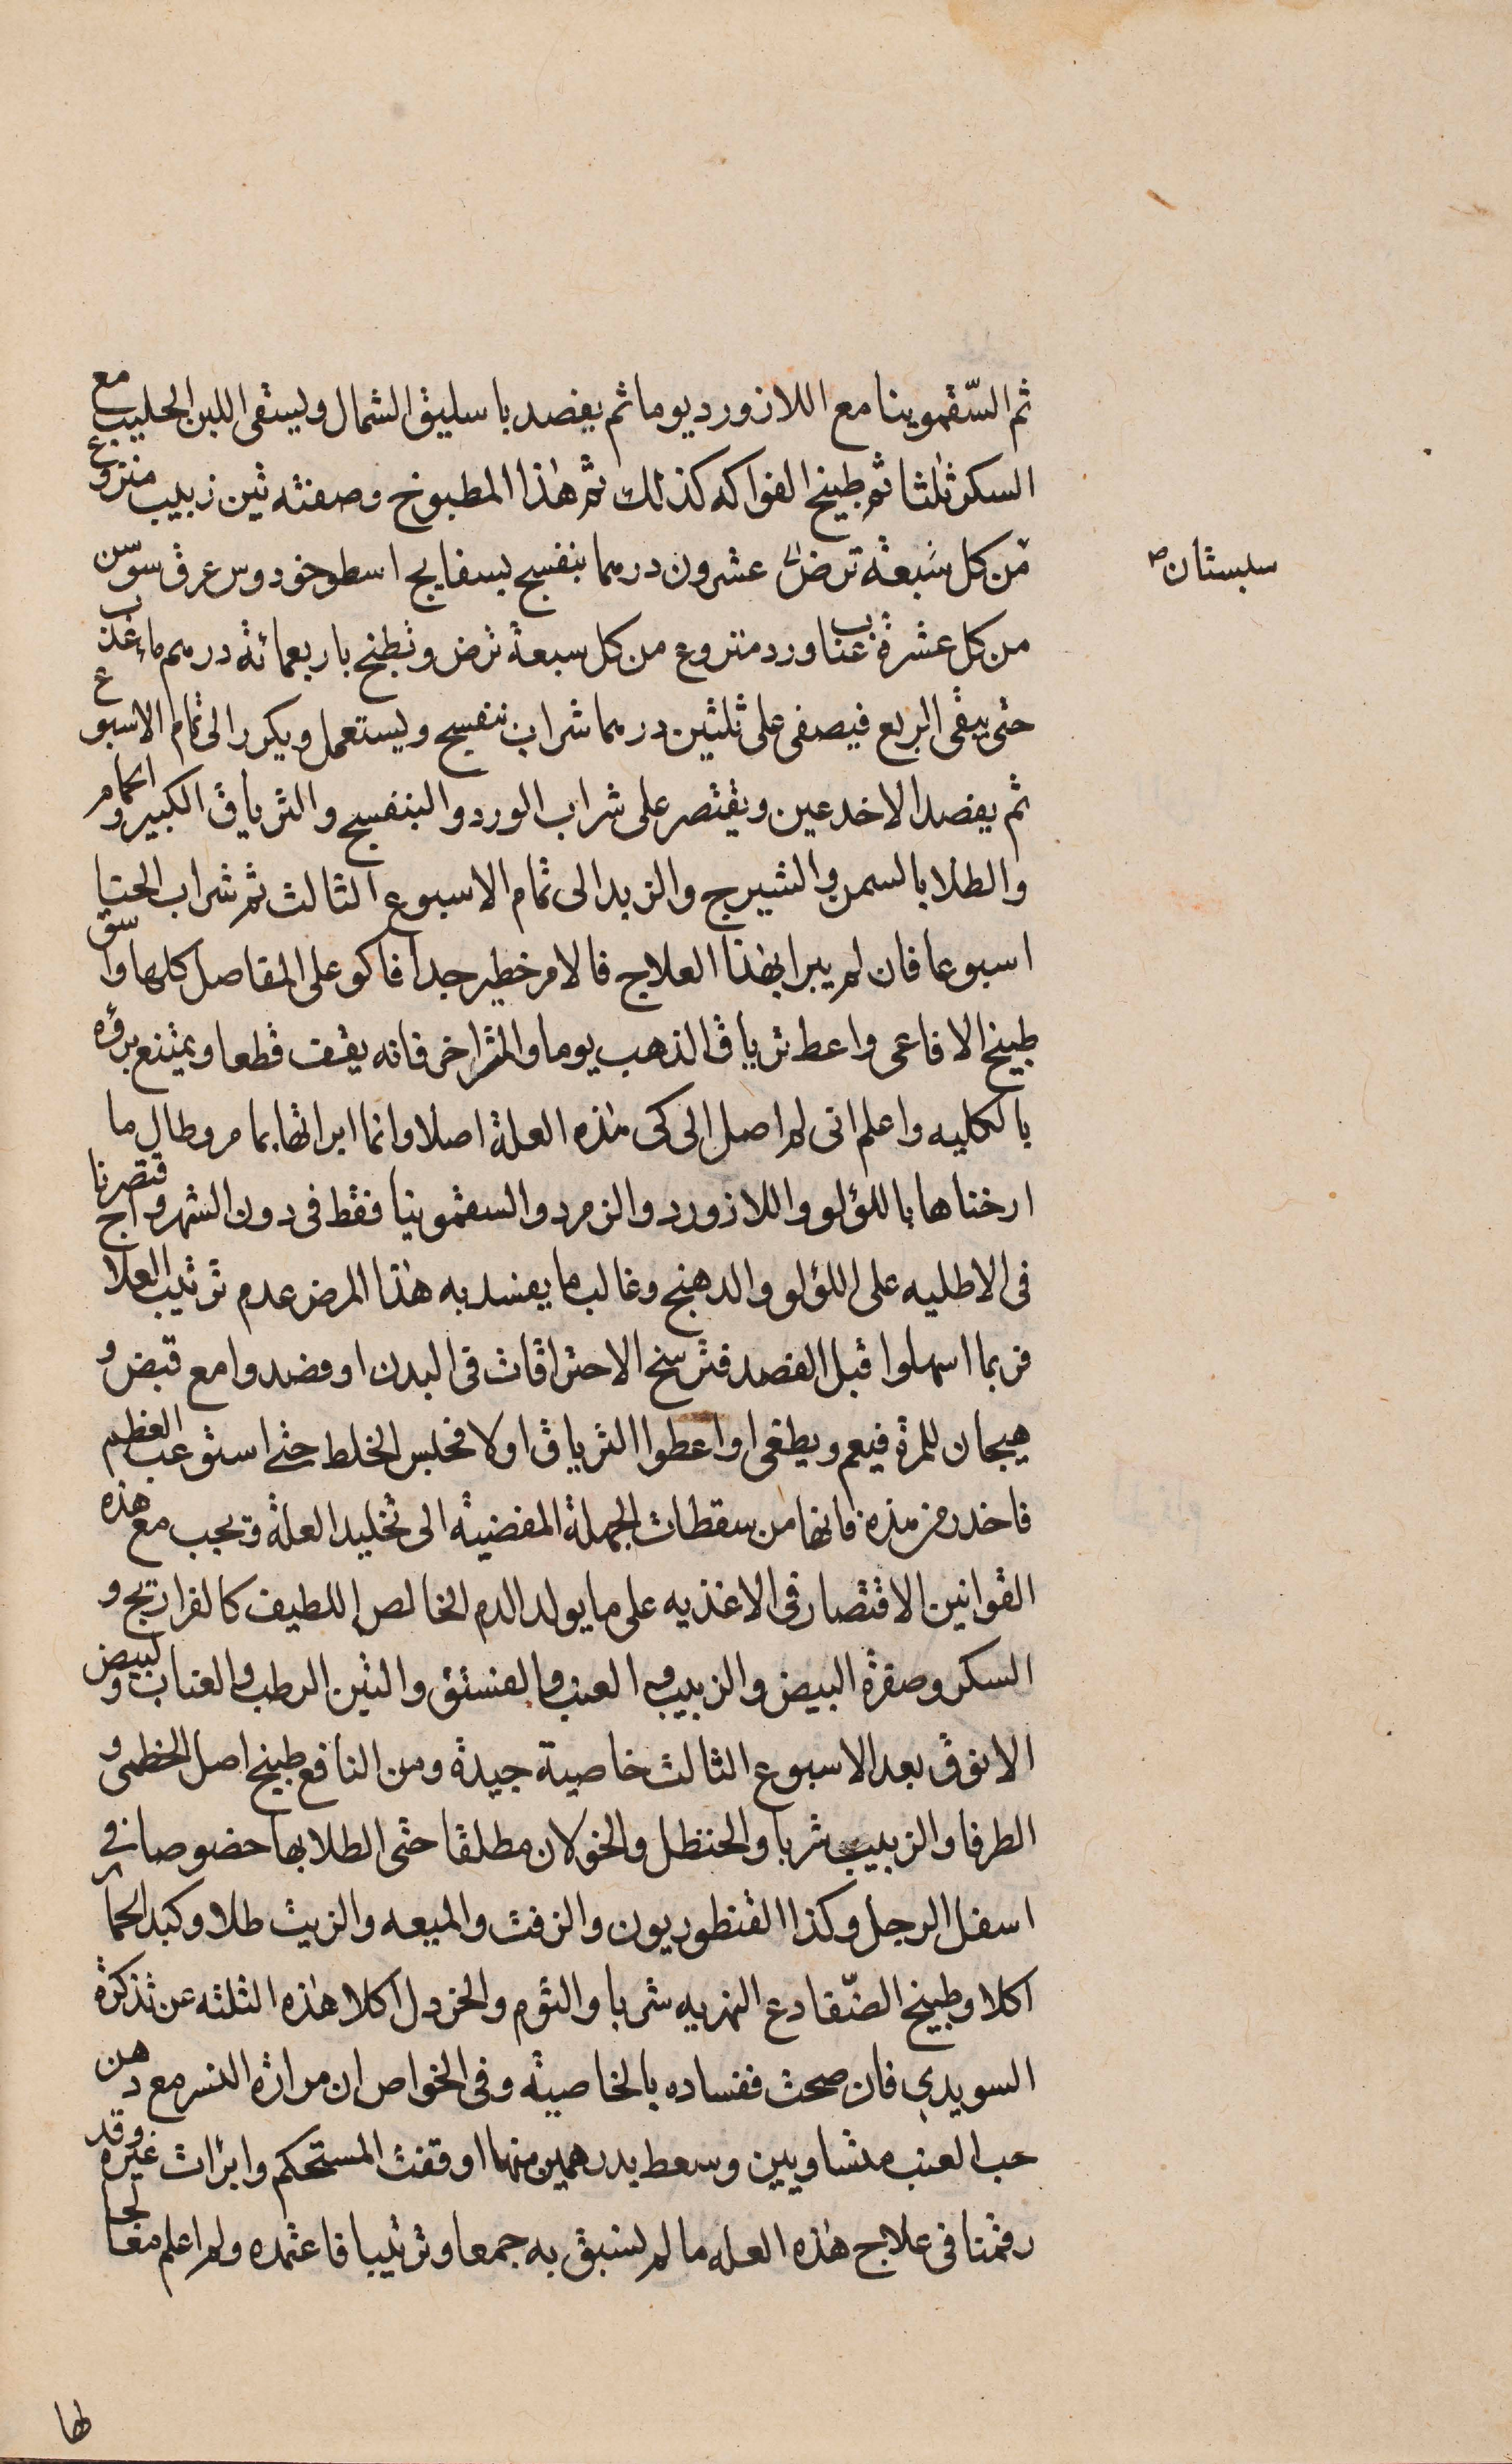 ثم السّقمونيا مع اللازورد يوما ثم يفصد باسليق الشمال ويسقى اللبن الحليب مع
السكر ثلثا ثم طبيخ الفواكه كذلك ثم هذا المطبوخ وصفته تين زبيب منزوع
من كل سبعة ترض عشرون درهما بنفسج بسفايج اسطوخودوس عرق سوسن
سبستان صح
من كل عشرة عناب ورد منزوع من كل سبعة ترض وتطبخ باربعمائة درهم ماء عذب
حتى يبقى الربع فيصفى على ثلثين درهما شراب بنفسج ويستعمل ويكرر الى تمام الاسبوع
ثم يفصد الاخدعين ويقتصر على شراب الورد والبنفسج والترياق الكبير والحمام
والطلا بالسمن والشيرج والزبد الى تمام الاسبوع الثالث ثم شراب
اسبوعا فان لم يبرا بهذا العلاج فالامر خطير جدا فاكو على المفاصل كلها واسق
طبيخ الافاعى واعط ترياق الذهب يوما والمثر اخر فانه يقف قطعا ويمتنع برؤه
بالكليه واعلم انى لم اصل الى كى هذه العلة اصلا وانما ابراتها بما مر وطال ما
ارخناها باللؤلو واللازورد والزمرد والسقمونيا فقط فى دون الشهر واقتصرنا
فى الاطليه على اللؤلو والدهنج وغالب ما يفسد به هذا المرض عدم ترتيب العلاج
فربما اسهلوا قبل الفصد فترسخ الاحتراقات فى البدن او فصدوا مع قبض و
هيجان للمرة فيعم ويطغى او اعطوا الترياق اولا فحبس الخلط حتى استوعب العظم
فاحذر من هذه فانها من سقطات الجهلة المفضية الى تخليد العلة ويجب مع هذه
القوانين الاقتصار فى الاغذيه على ما يولد الدم الخالص اللطيف كالفراريج و
السكر وصفرة البيض والزبيب والعنب والفستق والتين الرطب والعناب ولبيض
الانوق بعد الاسبوع الثالث خاصية جيدة ومن النافع طبيخ اصل الخطمى و
الطرفا والزبيب شربا والحنظل والخولان مطلقا حتى الطلا بها خصوصا فى
اسفل الرجل وكذا القنطوريون والزفت والميعه والزيت طلا وكبد الحمار
اكلا وطبيخ الضّفادع النهريه شربا والثوم والخردل اكلا هذه الثلثه عن تذكرة
السويدي فان صحت ففساده بالخاصية وفى الخواص ان مرارة النسر مع دهن
حب العنب متساويين وسعط بدرهمين منها اوقفت المستحكم وابرات غيره وقد
رقمنا فى علاج هذه العله ما لم نسبق به جمعا وترتيبا فاعتمده ولم اعلم معالجا
لها